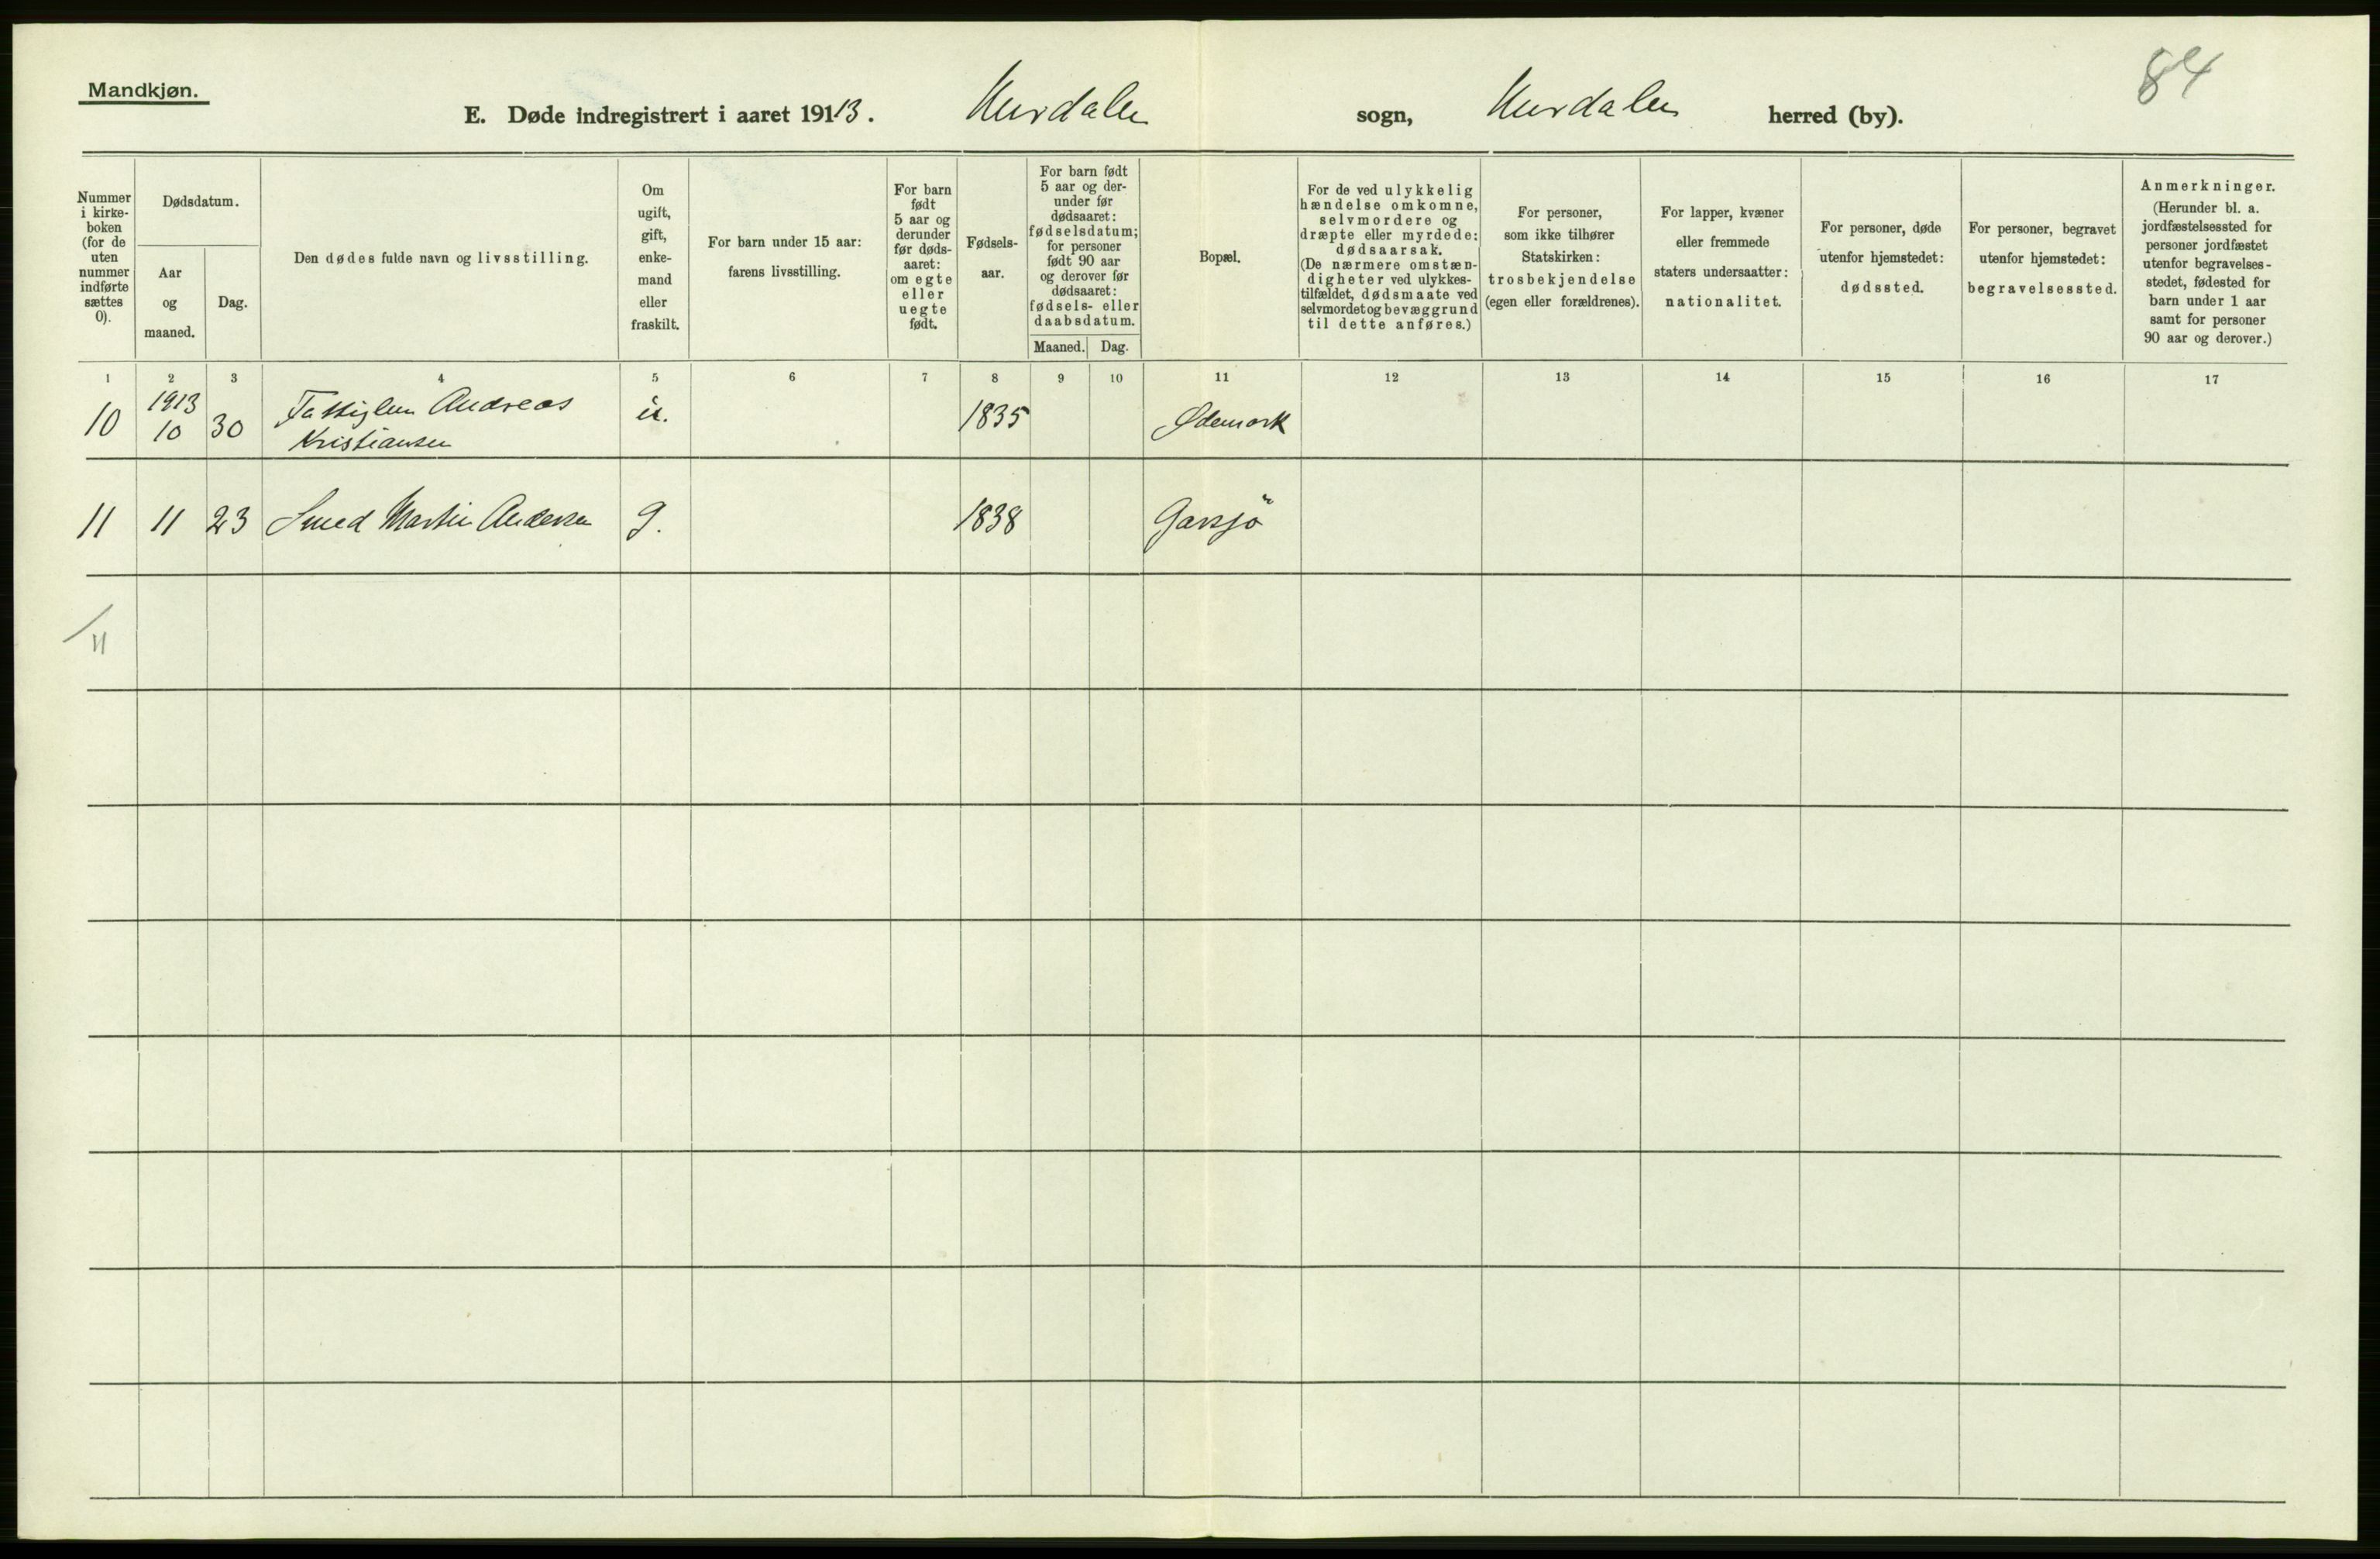 Mandkjøn.
84
E. Døde indregistrert i aaret 19113. Hurdalen sogn, Hurdalen herred (by).
Nummer
i kirke-
boken
(for de
uten
nummer
indførte
sættes
0).
Dødsdatum.
Aar
og
maaned.
Dag.
Den dødes fulde navn og livsstilling.
Om
ugift,
gift,
enke-
mand
eller
fraskilt.
For barn under 15 aar:
farens livsstilling.
For barn
født
5 aar og
derunder
før døds-
aaret:
om egte
eller
uegte
født.
Fødsels-
aar.
For barn født
5 aar og der-
under før
dødsaaret:
fødselsdatum;
for personer
født 90 aar
og derover før
dødsaaret:
fødsels- eller
daabsdatum.
Maaned. Dag.
Bopæl.
For de ved ulykkelig
hændelse omkomne,
selvmordere og
dræpte eller myrdede:
dødsaarsak.
(De nærmere omstæn-
digheter ved ulykkes-
tilfældet, dødsmaate ved
selvmordet og bevæggrund
til dette anføres.)
For personer,
som ikke tilhører
Statskirken:
trosbekjendelse
(egen eller forældrenes).
For lapper, kvæner
eller fremmede
staters undersaatter:
nationalitet.
For personer, døde
utenfor hjemstedet:
dødssted.
For personer, begravet
utenfor hjemstedet:
begravelsessted.
Anmerkninger.
(Herunder bl. a.
jordfæstelsessted for
personer jordfæstet
utenfor begravelses-
stedet, fødested for
barn under 1 aar
samt for personer
90 aar og derover.)
1 2 3 4 5 6 7 8 9 10 11 12 13 14 15 16 17
1913
10 10 30 Andreas u. 1835 Ødemark
Kristiansen
11 11 23 Smed Martin Andersen g. 1838 Garsjö
11